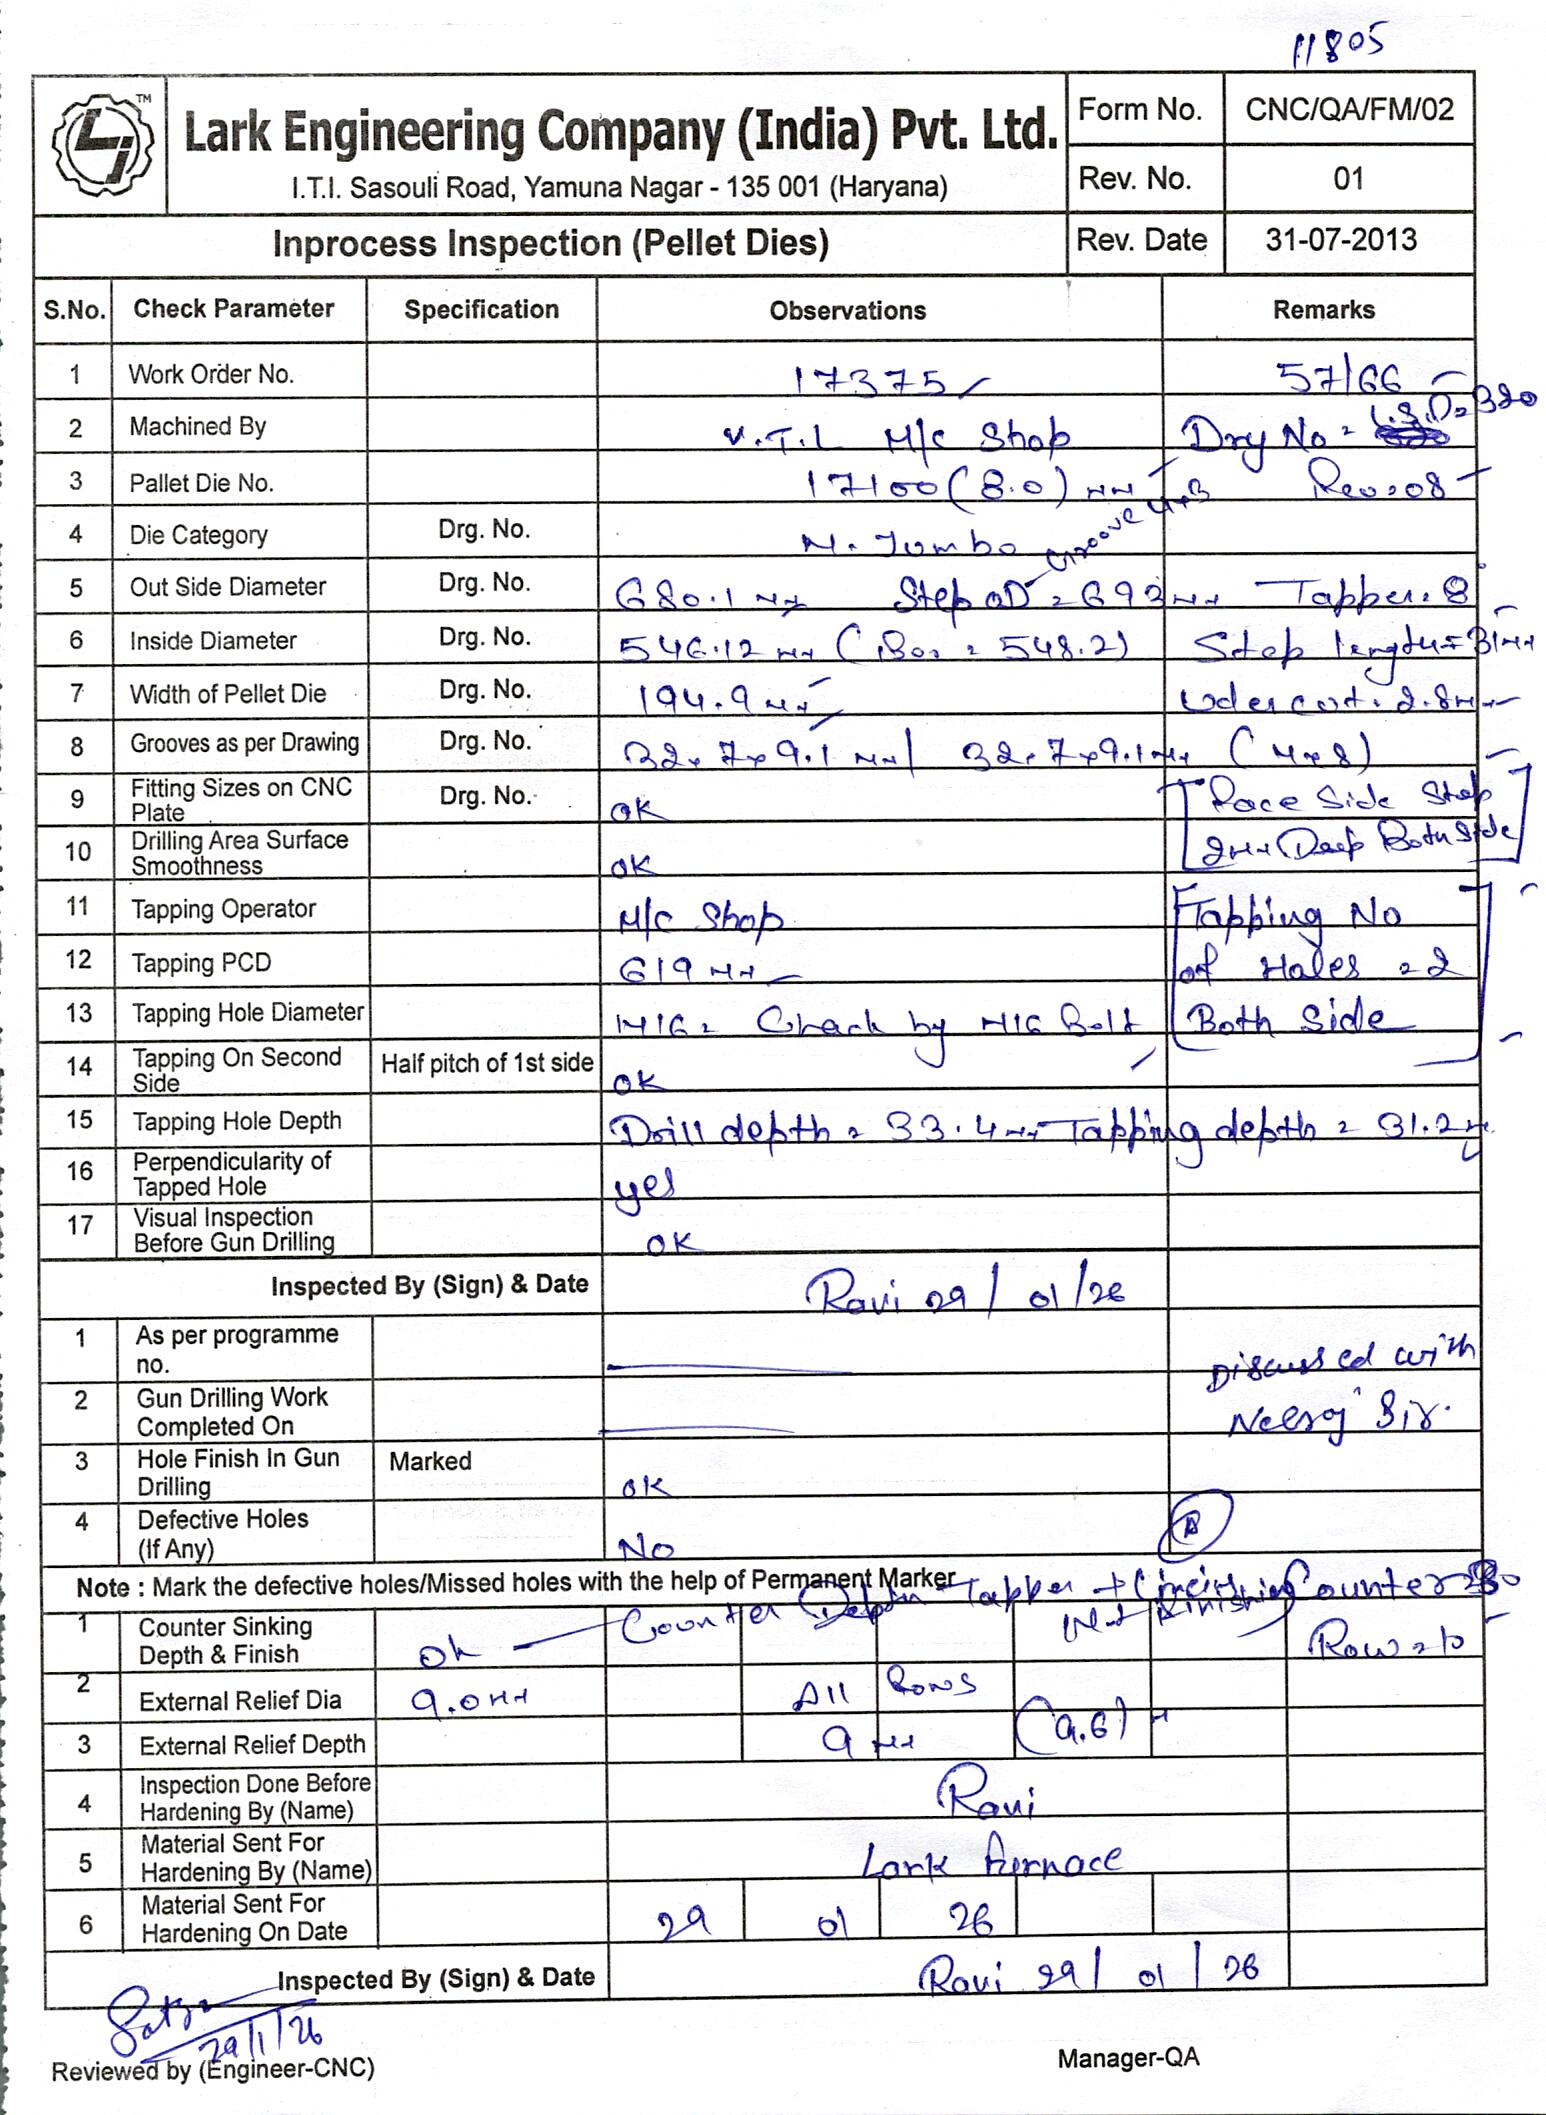 11805
TM
Lark Engineering Company (India) Pvt. Ltd.
I.T.I. Sasouli Road, Yamuna Nagar - 135 001 (Haryana)
Form No. CNC/QA/FM/02
Rev. No. 01
Inprocess Inspection (Pellet Dies) Rev. Date 31-07-2013
S.No. Check Parameter Specification Observations Remarks
1 Work Order No. 17375 57/66
2 Machined By V.T.L M/c Shop Drg No = L.S.D=320
3 Pallet Die No. 17100 (8.0) mm Rev=08
4 Die Category Drg. No. M. Jumbo Groove 4x3
5 Out Side Diameter Drg. No. 680.1 mm Step OD = 692 mm Tapper = 8
6 Inside Diameter Drg. No. 546.12 mm ( = 548.2) Step length = 31mm
7 Width of Pellet Die Drg. No. 194.9 mm Udercut = 2.8mm
8 Grooves as per Drawing Drg. No. 32x7x9.1 mm / 32x7x9.1mm (4x8)
9 Fitting Sizes on CNC Plate Drg. No. OK Face Side Step
10 Drilling Area Surface Smoothness OK 2mm Deep Both Side
11 Tapping Operator M/c Shop Tapping No
12 Tapping PCD 619 mm of Holes = 2
13 Tapping Hole Diameter M16 = Check by M16 Bolt Both Side
14 Tapping On Second Side Half pitch of 1st side OK
15 Tapping Hole Depth Drill depth = 33.4mm Tapping depth = 31.2
16 Perpendicularity of Tapped Hole yes
17 Visual Inspection Before Gun Drilling OK
Inspected By (Sign) & Date Ravi 29/01/26
1 As per programme no. Discussed with
2 Gun Drilling Work Completed On Neeraj Sir.
3 Hole Finish In Gun Drilling Marked OK
4 Defective Holes (If Any) No
Note : Mark the defective holes/Missed holes with the help of Permanent Marker
Counter Depth Tapper + Counter
1 Counter Sinking Depth & Finish OK Finishing Row = 10
2 External Relief Dia 9.0mm All Rows
3 External Relief Depth 9 mm (9.6)
4 Inspection Done Before Hardening By (Name) Ravi
5 Material Sent For Hardening By (Name) Lark Furnace
6 Material Sent For Hardening On Date 29 01 26
Inspected By (Sign) & Date Ravi 29/01/26
29/1/26
Reviewed by (Engineer-CNC) Manager-QA